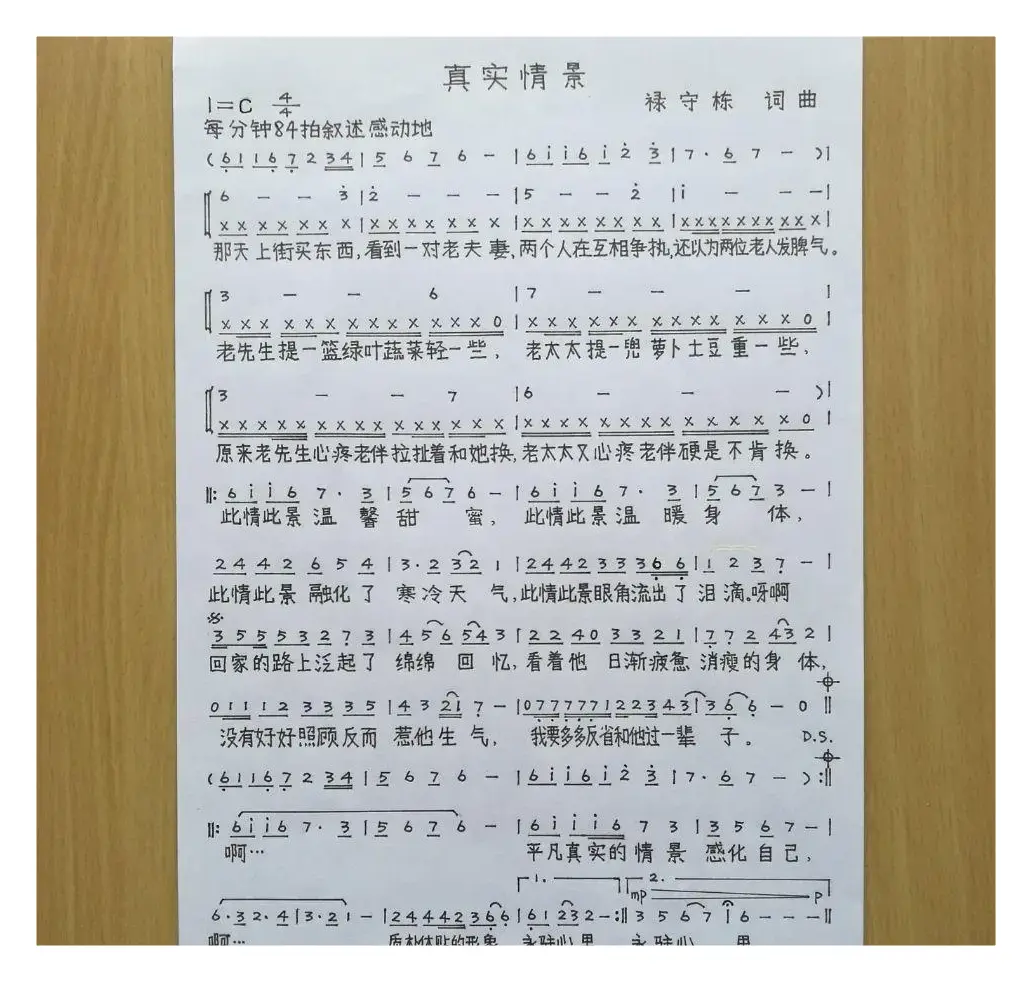 真实情景
1=C 4/4
禄守栋 词曲
每分钟84拍叙述感动地
(6 1 1 6 7 2 3 4 | 5 6 7 6 - | 6 i i 6 i 2 3 | 7 · 6 7 - )|
6 - - 3 | 2 - - - | 5 - - 2 | i - - - |
x x x x x x x | x x x x x x x | x x x x x x x x | x x x x x x x x x x |
那天上街买东西,看到一对老夫妻,两个人在互相争执,还以为两位老人发脾气。
3 - - 6 | 7 - - - |
x x x x x x x x x x x x x x 0 | x x x x x x x x x x x x x 0 |
老先生提一篮绿叶蔬菜轻一些, 老太太提一兜萝卜土豆重一些,
3 - - 7 | 6 - - - )|
原来老先生心疼老伴拉扯着和她换,老太太又心疼老伴硬是不肯换。
‖: 6 i i 6 7 · 3 | 5 6 7 6 - | 6 i i 6 7 · 3 | 5 6 7 3 - |
此情此景温馨甜蜜, 此情此景温暖身体,
2 4 4 2 6 5 4 | 3 · 2 3 2 1 | 2 4 4 2 3 3 3 6 6 | 1 2 3 7 - |
此情此景融化了寒冷天气,此情此景眼角流出了泪滴。呀啊
3 5 5 5 3 2 7 3 | 4 5 6 5 4 3 | 2 2 4 0 3 3 2 1 | 7 7 2 4 3 2 |
回家的路上泛起了绵绵回忆,看着他日渐疲惫消瘦的身体,
0 1 1 1 2 3 3 3 5 | 4 3 2 1 7 - | 0 7 7 7 7 7 1 2 2 3 4 3 | 3 6 6 - 0 ‖
没有好好照顾反而惹他生气, 我要多多反省和他过一辈子。 D.S.
(6 1 1 6 7 2 3 4 | 5 6 7 6 - | 6 i i 6 i 2 3 | 7 · 6 7 - ) :‖
‖: 6 i i 6 7 · 3 | 5 6 7 6 - | 6 i i i 6 7 3 | 3 5 6 7 - |
啊… 平凡真实的情景感化自己,
1. 2. mp p
6 · 3 2 · 4 | 3 · 2 1 - | 2 4 4 4 2 3 6 6 | 6 1 2 3 2 - :‖ 3 5 6 7 i | 6 - - - |
啊… 质朴体贴的形象 永驻心里 永驻心里